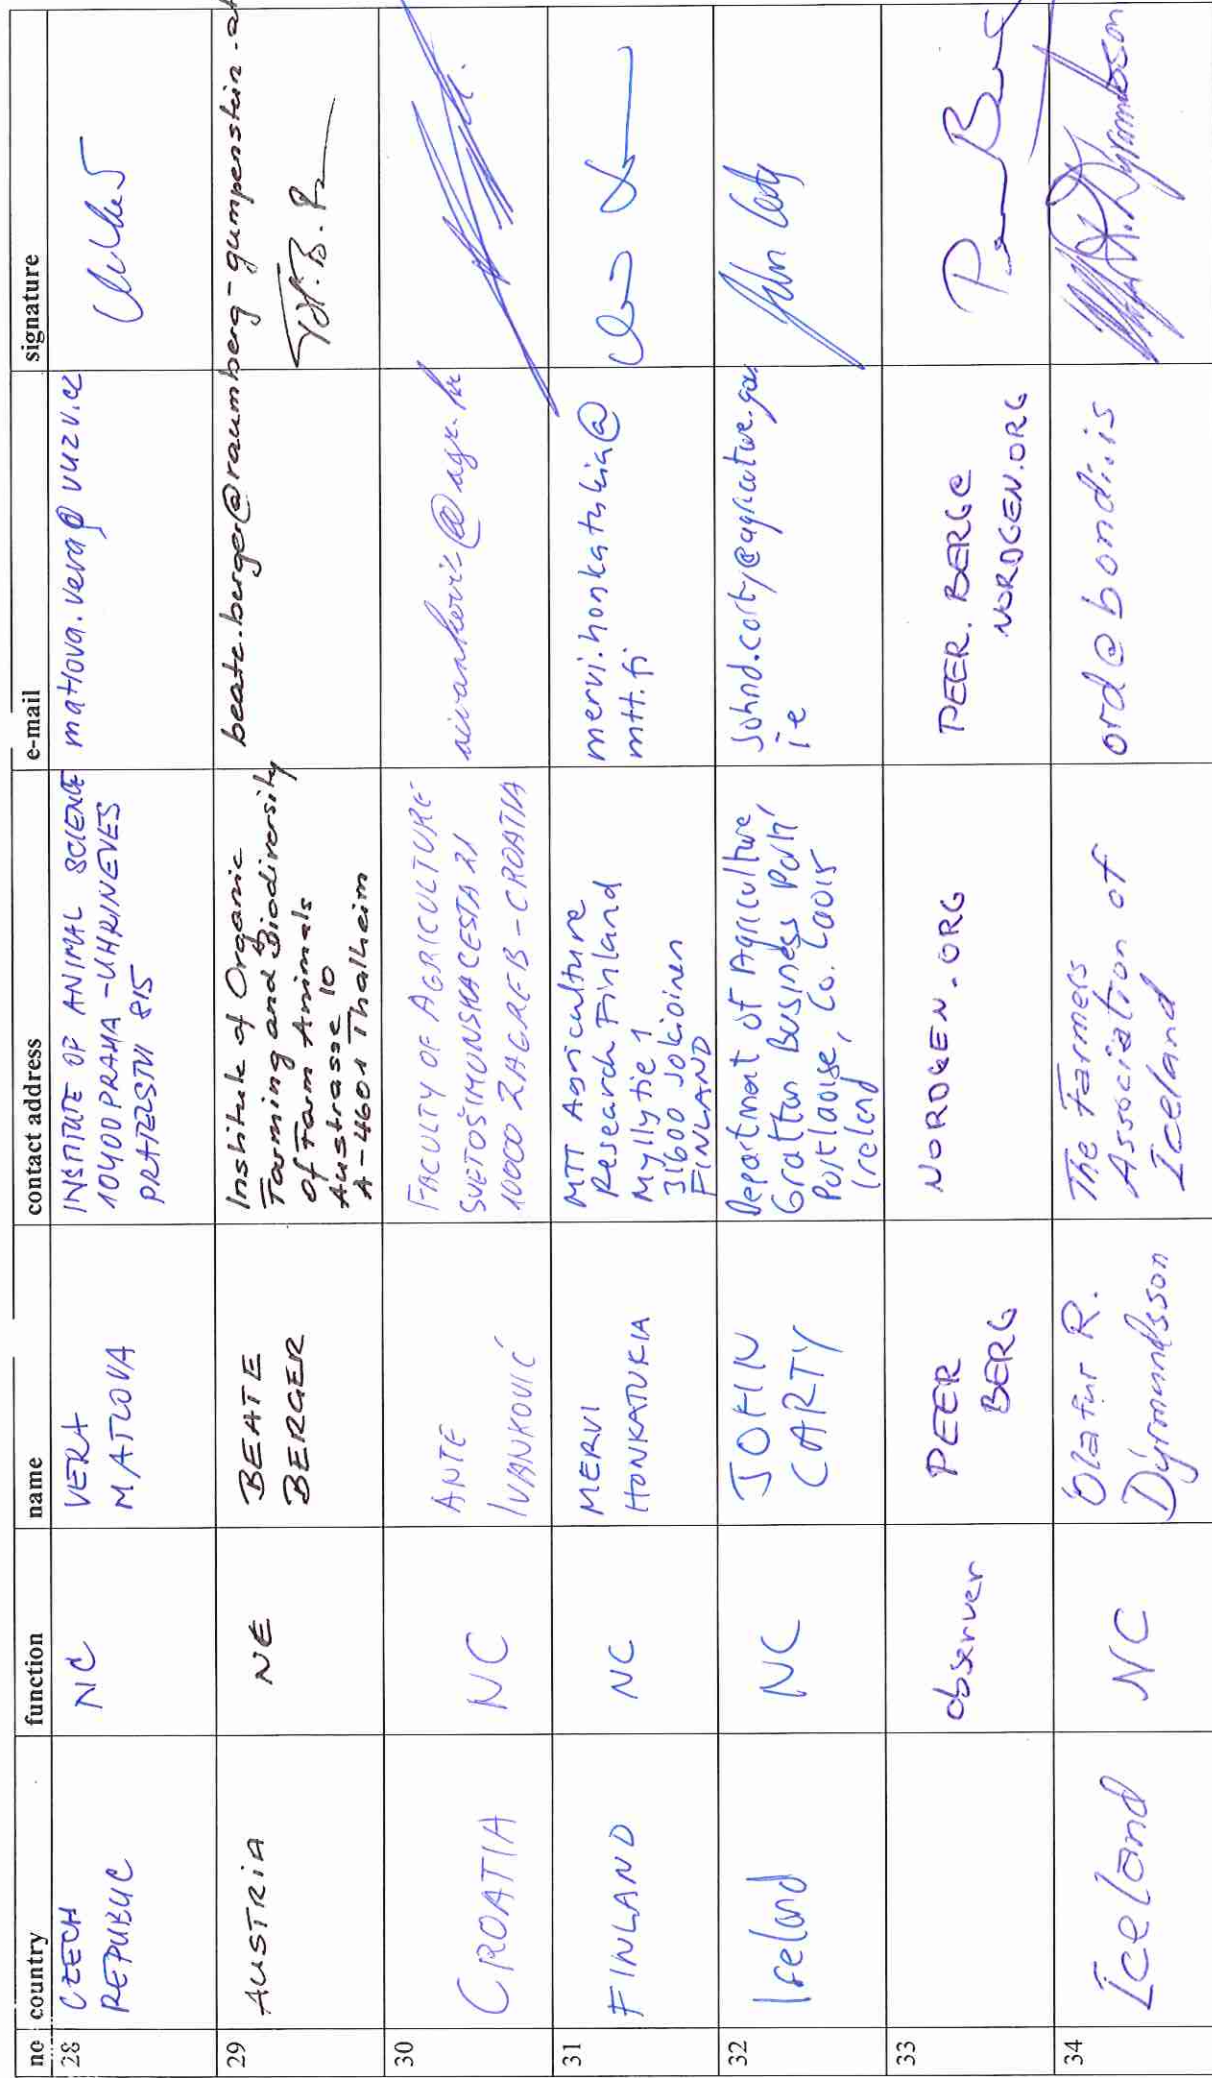 no country function name contact address e-mail signature
28
CZECH
REPUBLIC
NC
VERA
MATLOVA
INSTITUTE OF ANIMAL SCIENCE
10400 PRAHA - UHRINEVES
PRATELSTVI 815
matlova.vera@vuzv.cz
29
AUSTRIA
NE
BEATE
BERGER
Institute of Organic
Farming and Biodiversity
of Farm Animals
Austrasse 10
A-4601 Thalheim
beate.berger@raumberg-gumpenstein.at
30
CROATIA
NC
ANTE
IVANKOVIĆ
FACULTY OF AGRICULTURE
SVETOŠIMUNSKA CESTA 21
10000 ZAGREB - CROATIA
aivankovic@agr.hr
31
FINLAND
NC
MERVI
HONKATUKIA
MTT Agriculture
Research Finland
Myllytie 1
31600 Jokioinen
FINLAND
mervi.honkatukia@
mtt.fi
32
Ireland
NC
JOHN
CARTY
Department of Agriculture
Grattan Business Park,
Portlaoise, Co. Laois
Ireland
Johnd.carty@agriculture.gov.
ie
33
observer
PEER
BERG
NORDGEN.ORG
PEER.BERG@
NORDGEN.ORG
34
Iceland
NC
Ólafur R.
Dýrmundsson
The Farmers
Association of
Iceland
ord@bondi.is